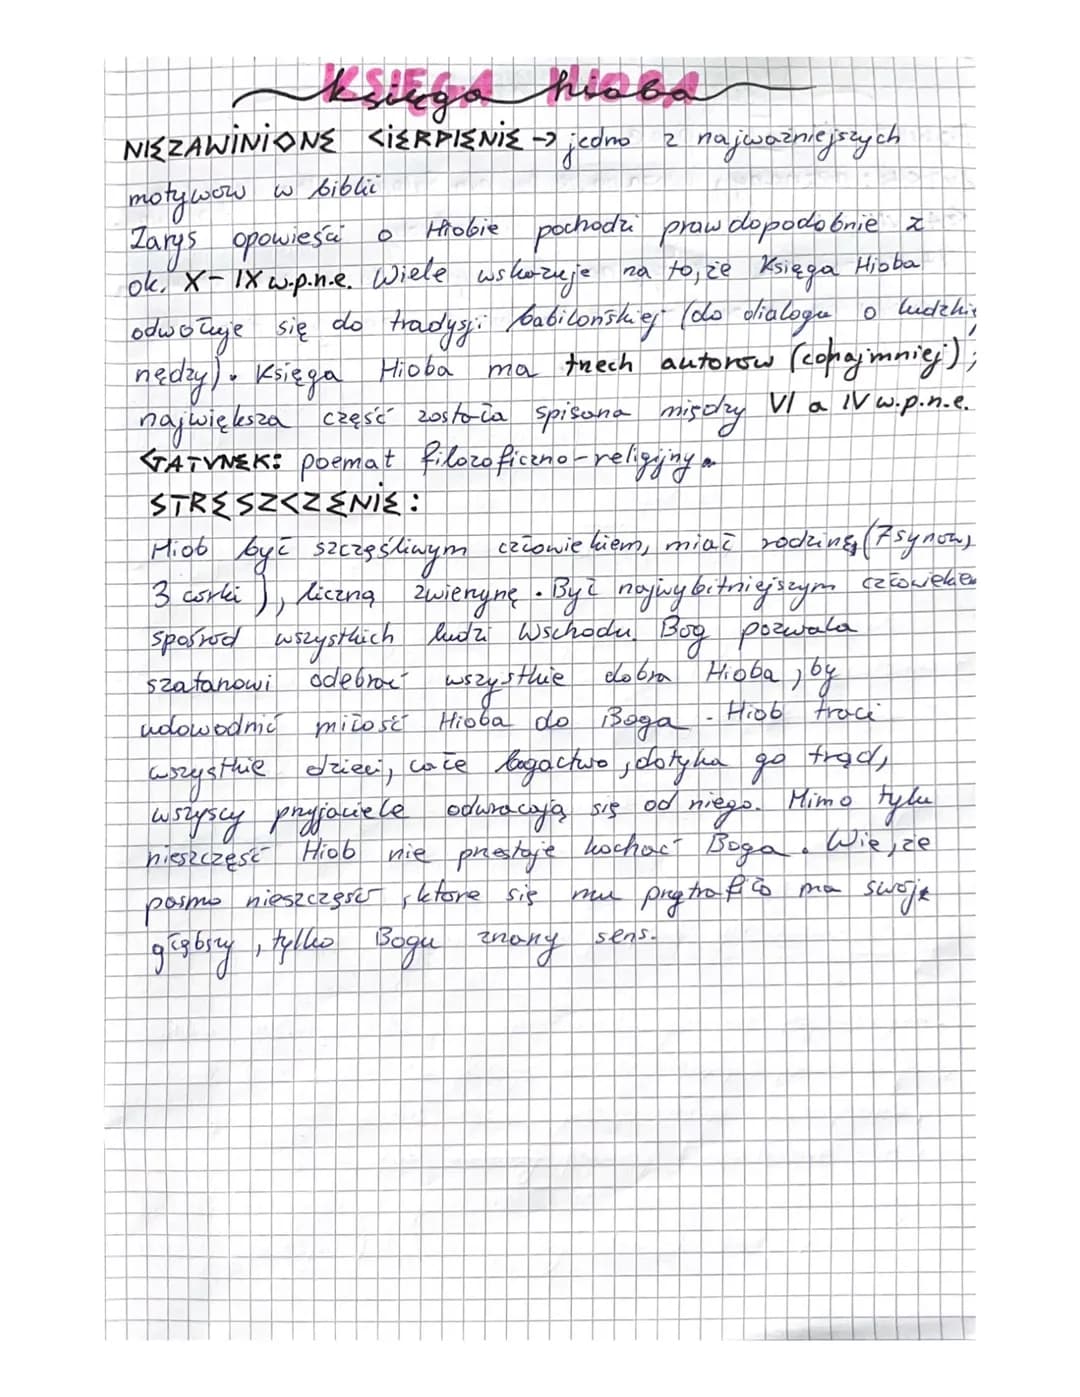 Księga hioba
NIEZAWINIONE CIERPIENIE → jedno z najważniejszych
motywow w biblii
Zarys opowieści o Hiobie pochodzi prawdopodobnie z
ok. X-IX w.p.n.e. Wiele wskazuje na to, że Księga Hioba
odwołuje się do tradysji babilońskiej (do dialogu o ludzkie
nędzy). Księga Hioba ma trzech autorow (conajmniej);
największa część została spisana między VI a IV w.p.n.e.
GATUNEK: poemat filozoficzno-religijny.
STRESZCZENIE:
Hiob był szczęśliwym człowiekiem, miał rodzinę (7 synow,
3 corki), liczną zwierzynę. Był najwybitniejszym człowiekem
spośrod wszystkich ludzi Wschodu. Bog pozwala
szatanowi odebrać wszystkie dobra Hioba, by
udowodnić miłość Hioba do Boga. Hiob traci
wszystkie dzieci, całe bogactwo, dotyka go trąd,
wszyscy przyjaciele odwracają się od niego. Mimo tylu
nieszczęść Hiob nie przestaje kochać Boga. Wie, że
pasmo nieszczęść, ktore się mu przytrafiło ma swoje
głębszy, tylko Bogu znany sens.